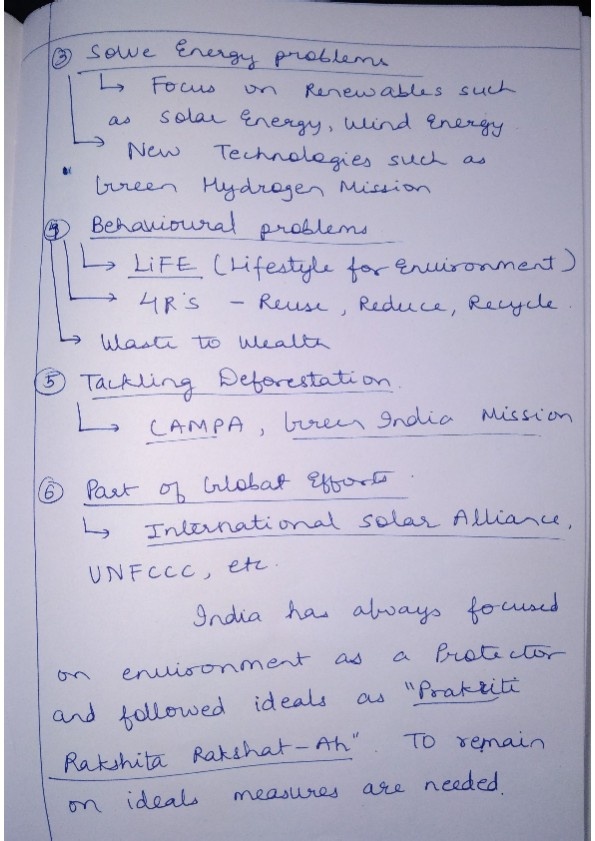 ③ Solve Energy problems
↳ Focus on Renewables such
as Solar Energy, Wind Energy
→ New Technologies such as
Green Hydrogen Mission
④ Behavioural problems
↳ LiFE (Lifestyle for Environment)
→ 4R's - Reuse, Reduce, Recycle.
↳ Waste to Wealth
⑤ Tackling Deforestation.
↳ CAMPA, Green India Mission
⑥ Part of Global Efforts.
↳ International Solar Alliance,
UNFCCC, etc.
India has always focused
on environment as a Protector
and followed ideals as "Prakriti
Rakshita Rakshat-Ah". To remain
on ideals measures are needed.